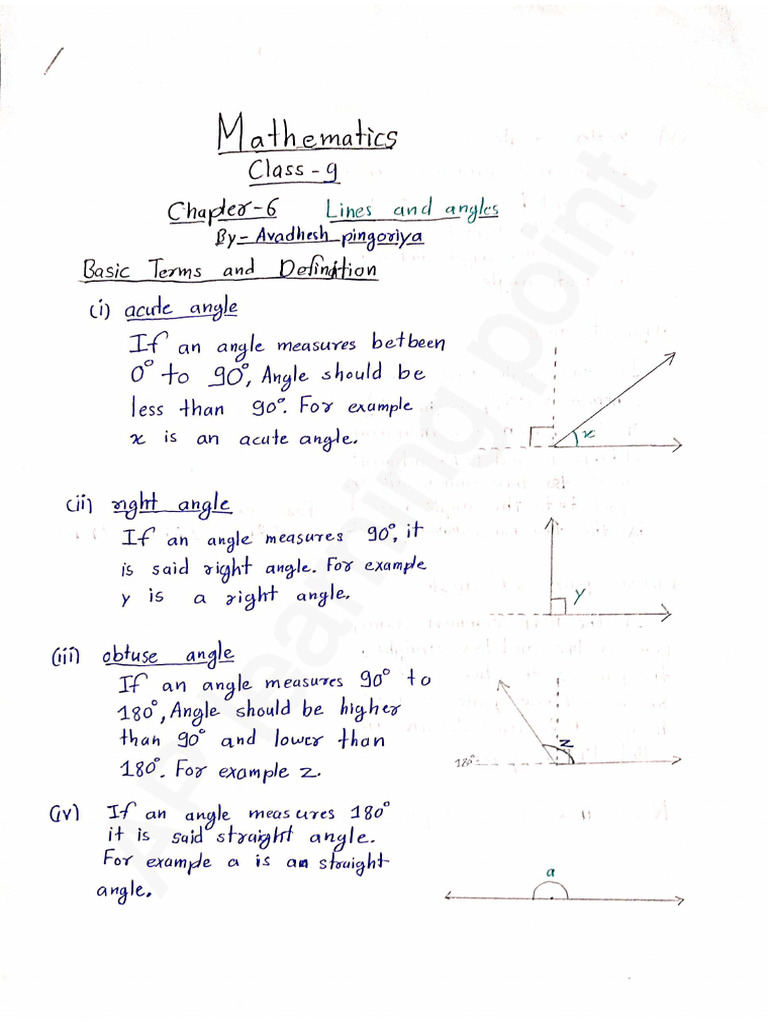 Mathematics
Class - 9
Chapter-6 Lines and angles
By- Avadhesh pingoriya
Basic Terms and Definition
(i) acute angle
If an angle measures betbeen
0° to 90°, Angle should be
less than 90°. For example
x is an acute angle.
x
(ii) right angle
If an angle measures 90°, it
is said right angle. For example
y is a right angle.
y
(iii) obtuse angle
If an angle measures 90° to
180°, Angle should be higher
than 90° and lower than
180°. For example z.
z
180°
(iv) If an angle measures 180°
it is said straight angle.
For example a is an straight
angle.
a
AP learning point